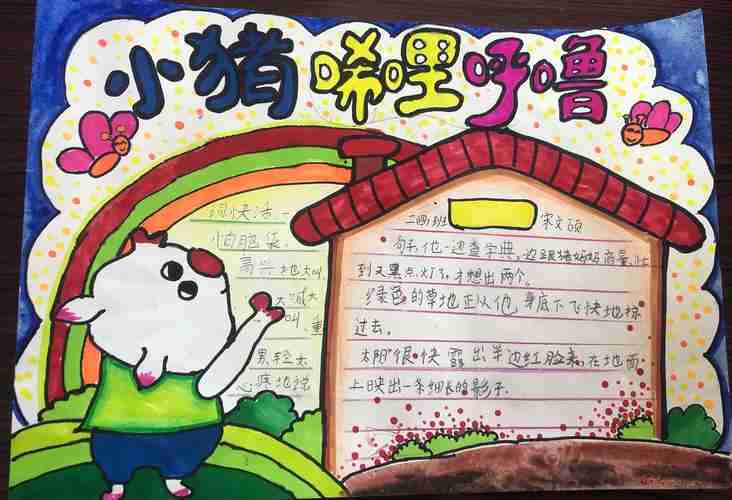 小猪唏哩呼噜
词快活一
怕白脸袋、
高兴地大叫
大喊大
叫、重
累轻太
心疼地说
三四班 宋文硕
句子他一边查字典,边跟猪妈妈商量,从
到又黑点灯了,才想出两个。
绿色的草地正从他身底下飞快地掠
过去。
太阳很快露出半边红脸来,在地面
上映出一条细长的影子.